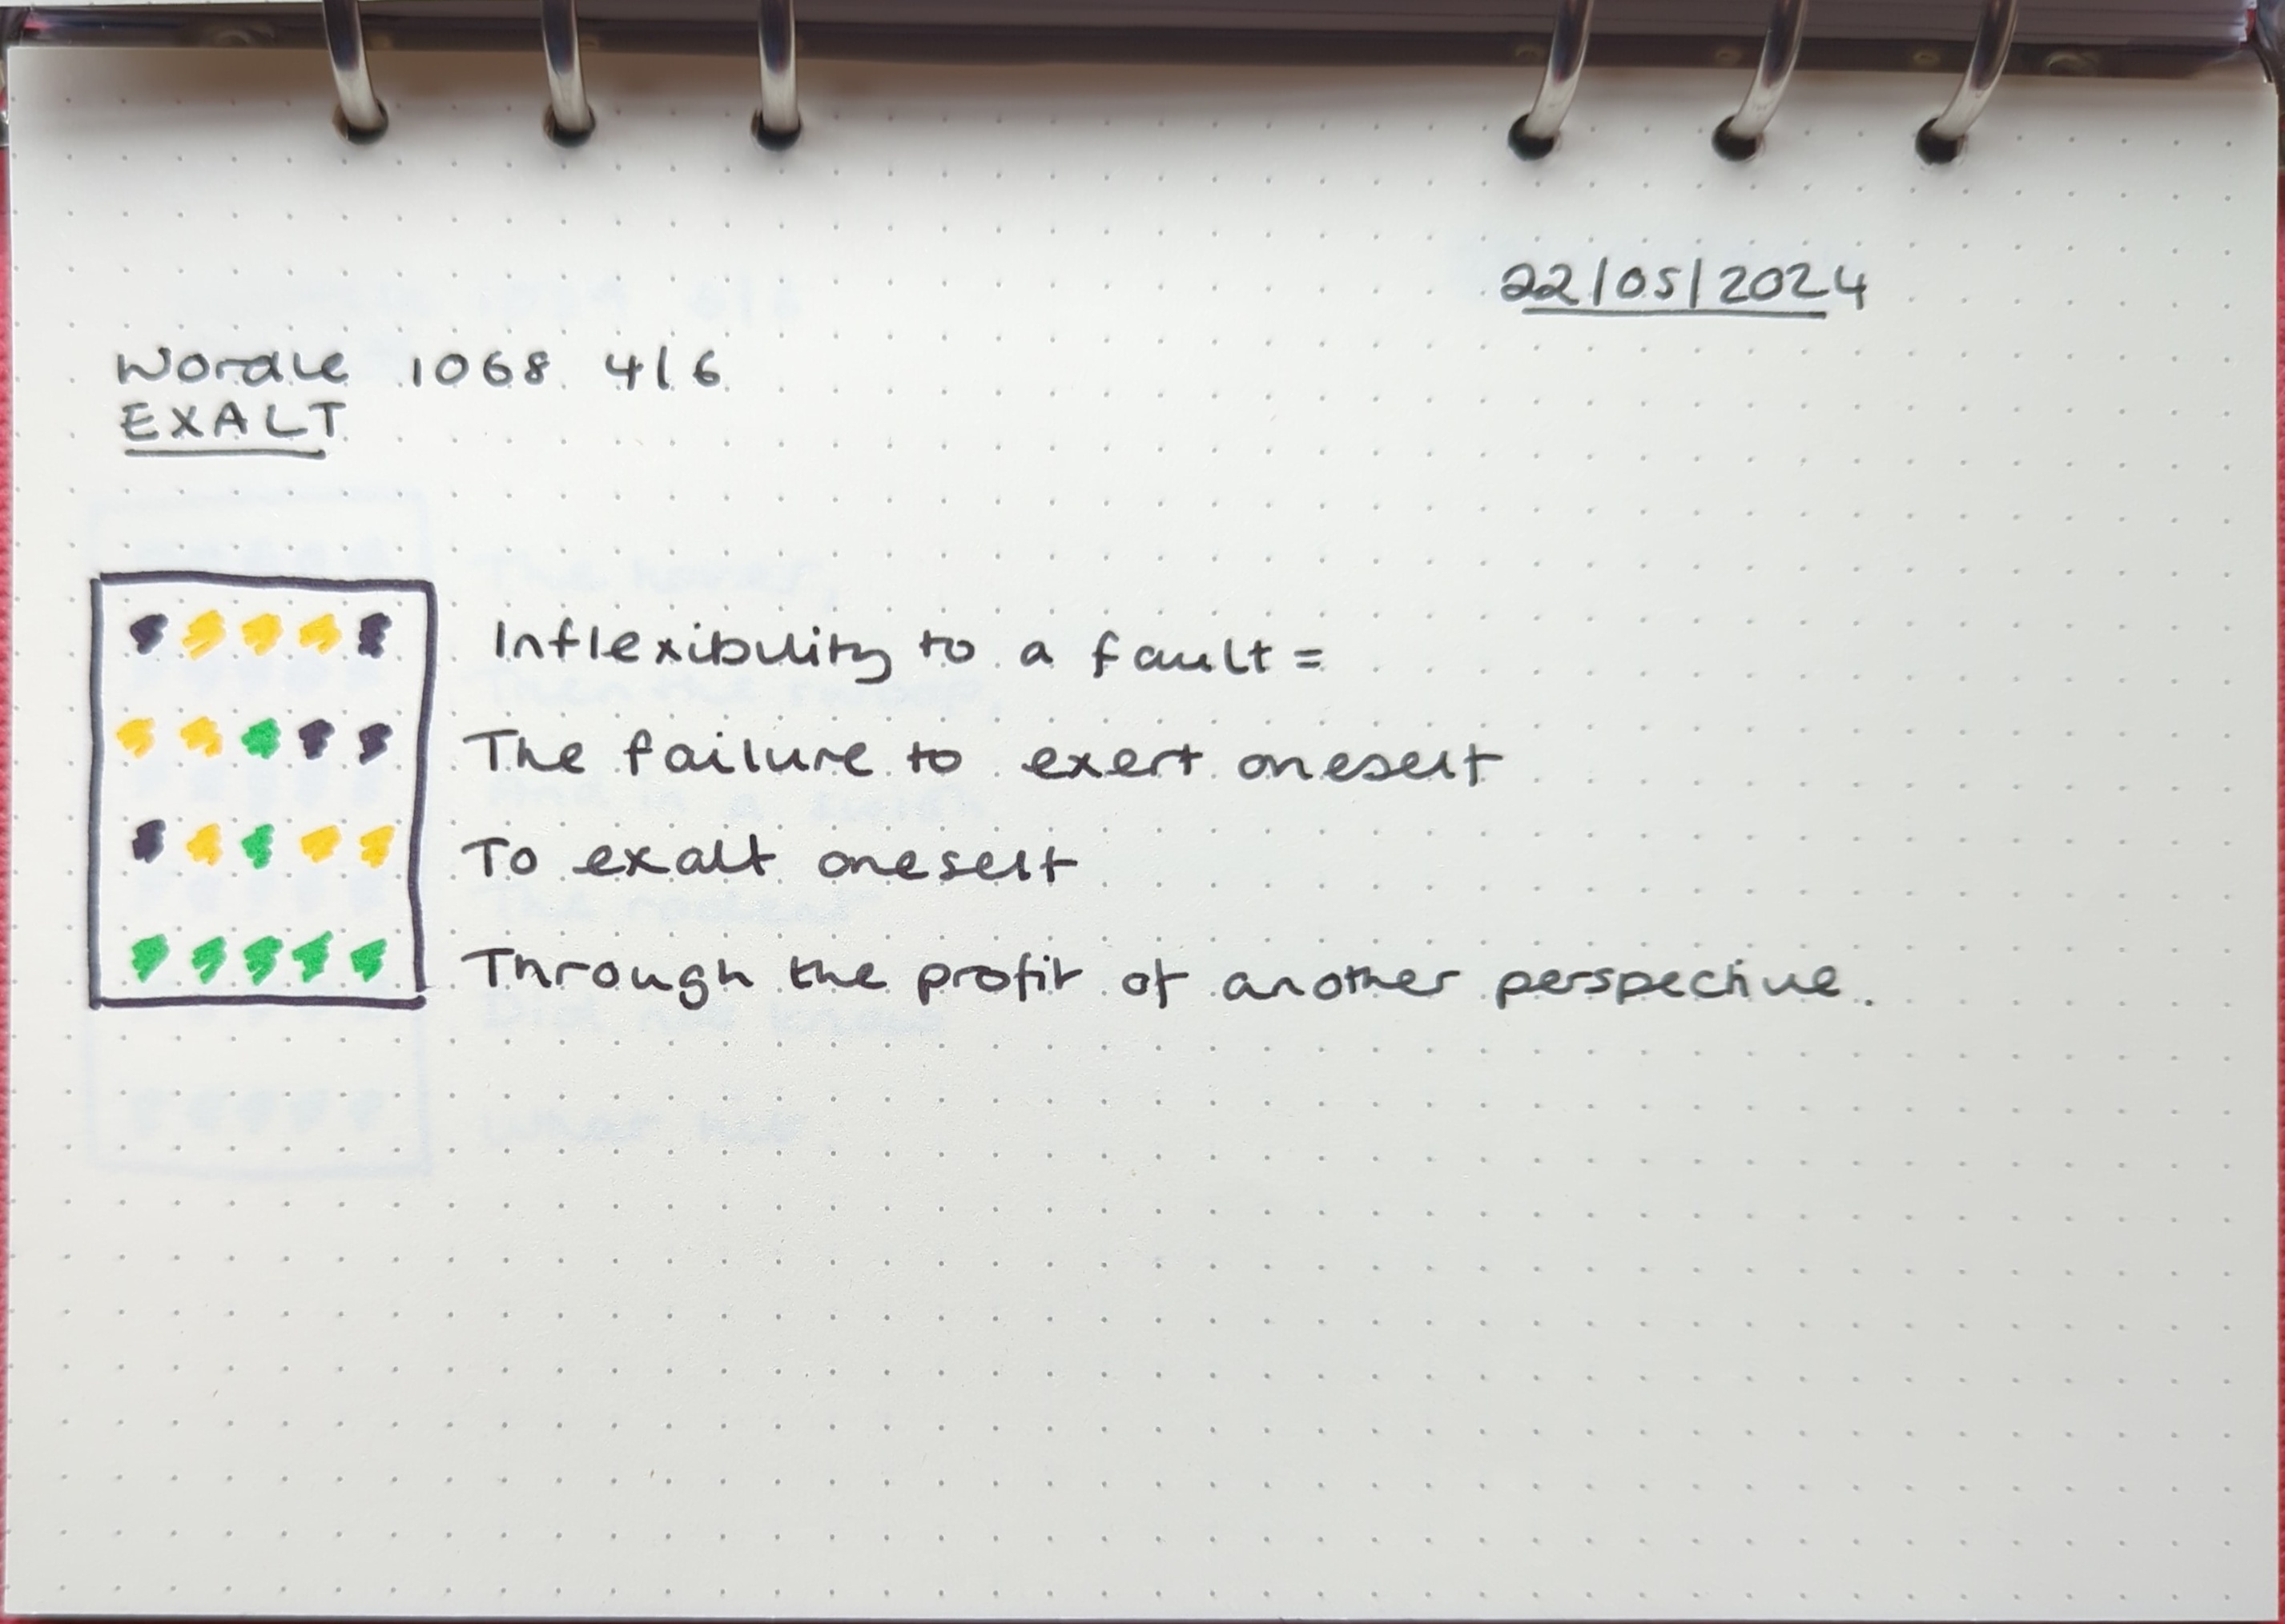 22/05/2024
Wordle 1068 4/6
EXALT
Inflexibility to a fault =
The failure to exert oneself
To exalt oneself
Through the profit of another perspective.